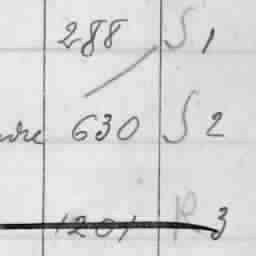 288 S 1
630 S 2
1201 R 3